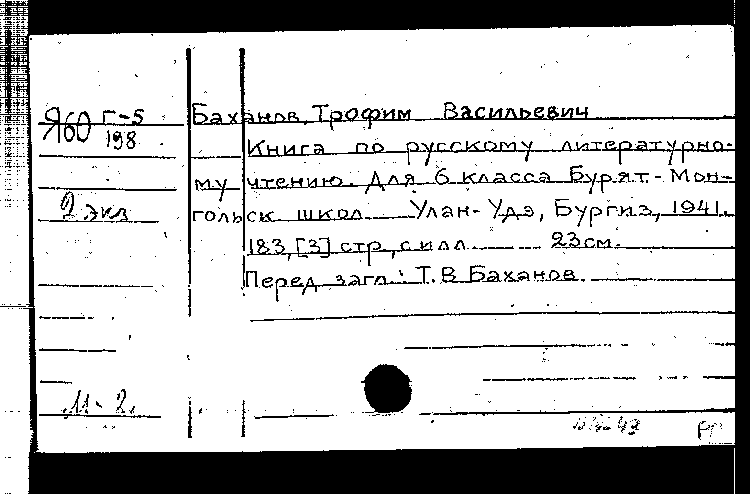 Я60 Г-5
198
Баханов, Трофим Васильевич
Книга по русскому литературно-
му чтению. Для 6 класса Бурят.-Мон-
2 экз
гольск школ. Улан-Удэ, Бургиз, 1941.
183, [3] стр, с илл. 23см.
Перед загл.: Т.В Баханов.
11-2.